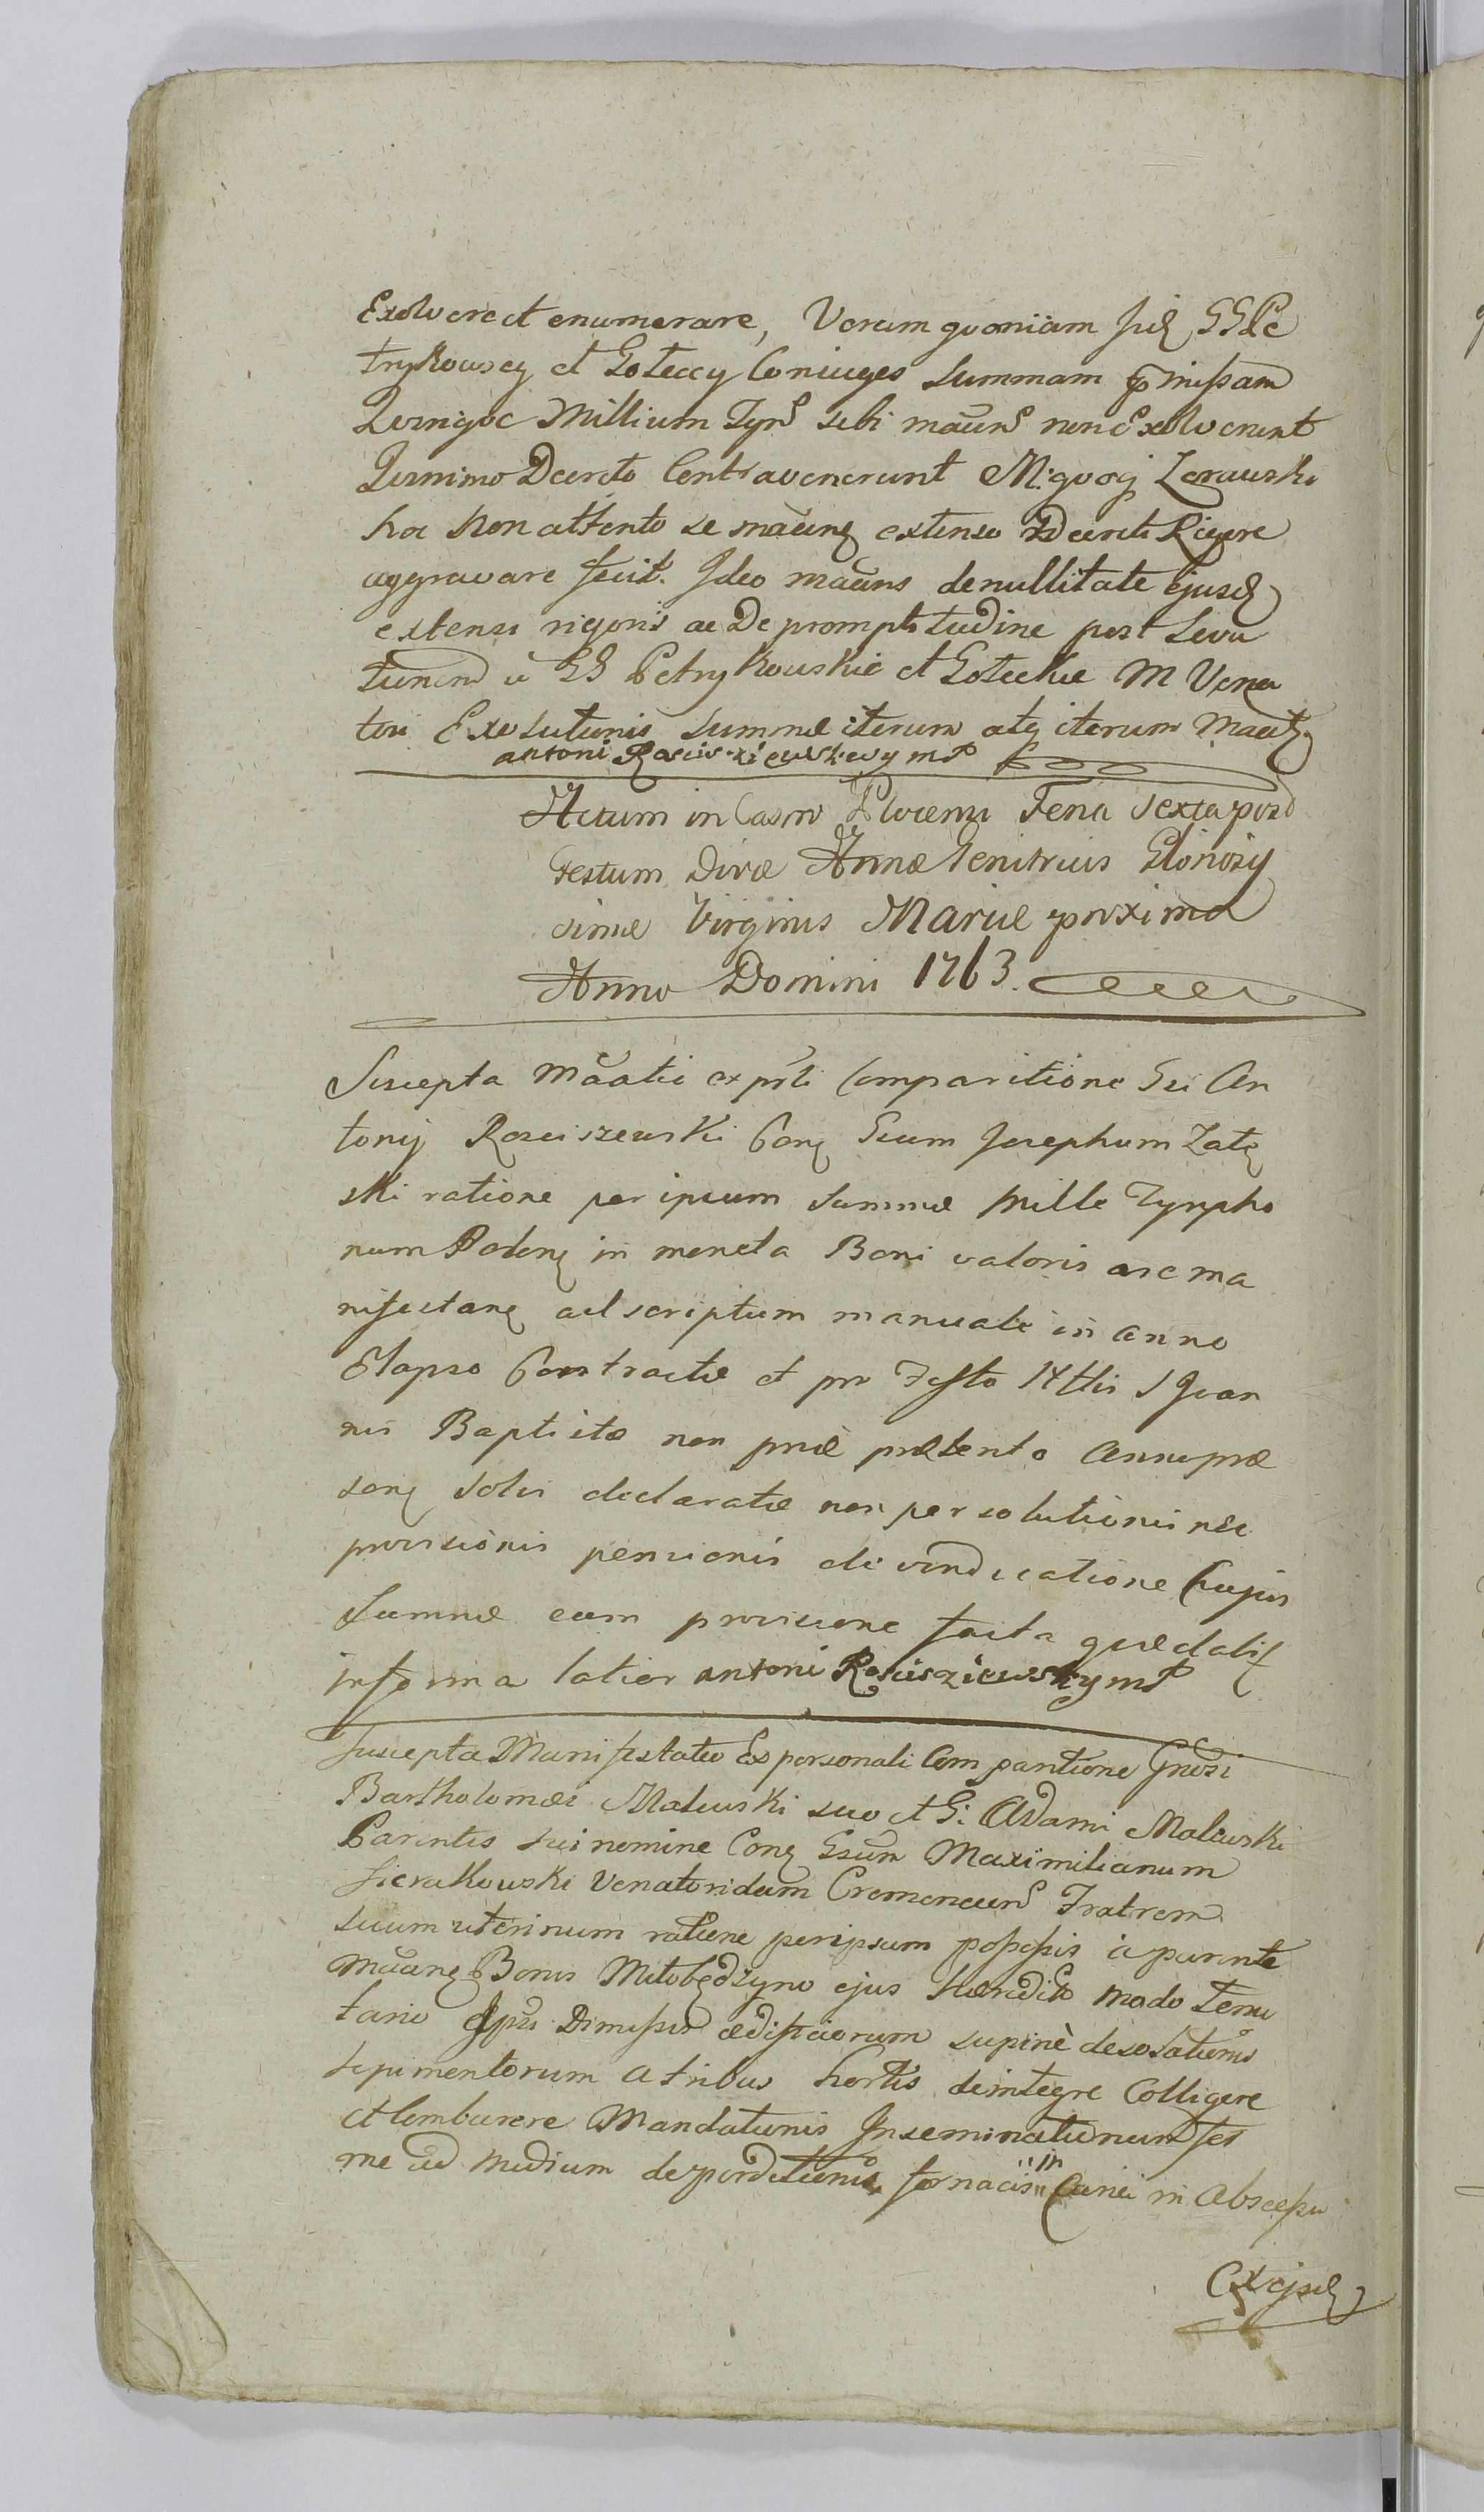 Exolvere et enumerare, Verum qvoniam hid GG Pe
trykowscy et Goteccy Coniuges Summam pmissam
Qvinqve Millium Tynf sibi maūns non Exolverunt
Qvinimo Decreto Contravenerunt M: qvoq Zorawski
hoc Non attento se maūnę extenso Decreti Rigore
aggravare fecit. Ideo maūns de nullitate Ejusd
extensi rigoris ac De promptitudine post Leva
tionem a GG Petrykowskie et Goteckie M Vena
tori Exolutionis Summæ iterum atq iterum Maatz
antoni Rosciszieuskey mP
Actum in Castro Plocensi Feria Sexta post
Festum Divæ Annæ Genitricis Gloriosy
simæ Virginis Mariæ proxima
Anno Domini 1763.
Suscepta Mãatio ex prli Comparitione Gsi An
tonij Rosciszewski Conę Gsum Josephum Zatę
ski ratione per ipsum Summæ Mille Tympho
num Polonę in moneta Boni valoris a se ma
nifestanę ad scriptum manuale in anno
Elapso Contractæ et pro Festo Nttis S Joan
nis Baptistæ non pridẽ præterito Anni præ
senę Solvi declaratæ non persolutionis nec
provisionis pensionis de vindicatione Cujus
Summæ cum provisione facta qvædalit
in forma latior antoni Rosciszieuskey mP
Suscepta Manifestatio Ex personali Comparitione Gnosi
Bartholomæi Malewski suo et G: Adami Malewski
Parentis sui nomine Conę Gsum Maximilianum
Sierakowski Venatoridam Cremenecens Fratrem
suum uterinum ratione per ipsum possessis a parente
Mãanę Bonis Mitobędzyno ejus hæredit modo tenu
tario Dimissis ædificiorum supinè desolationis
sepimentorum a tribus hortis de integre Colligere
et Comburere Mandationis Inseminationum fer
me ad medium deperditionis fornacis in Cunei in Abscessu
Ex ejsd